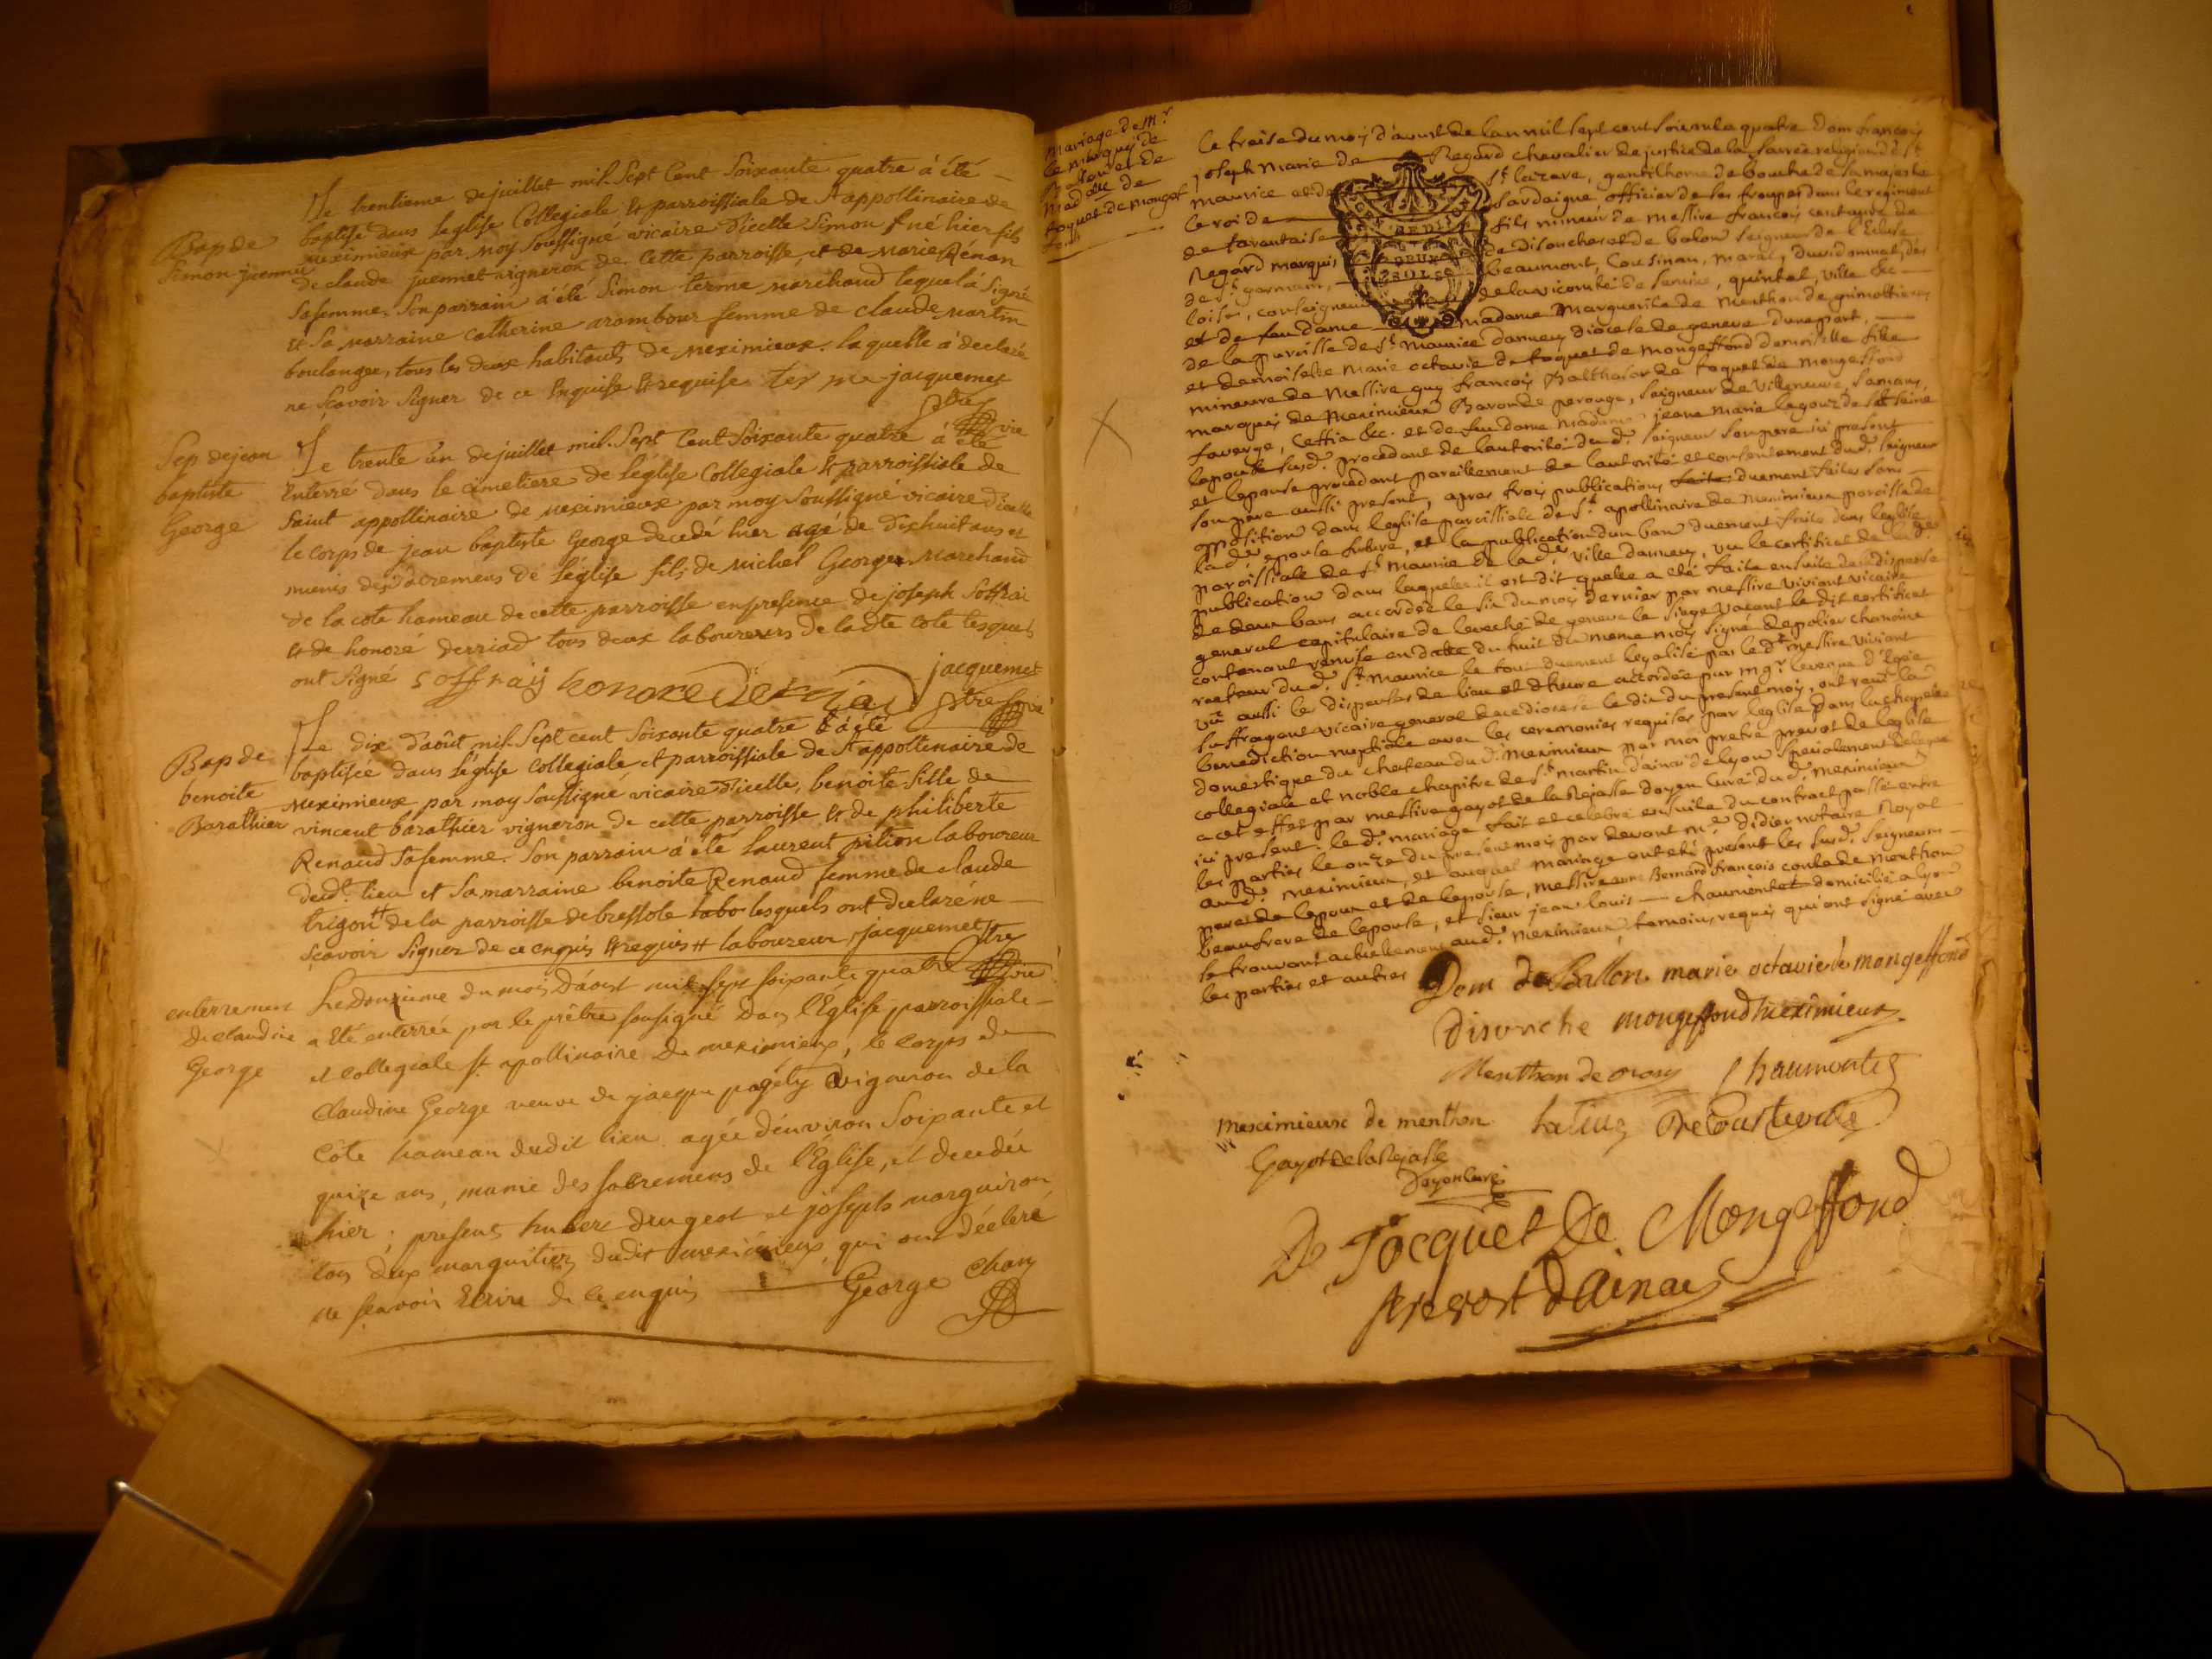 Bap de
Simon juennet
Le trentieme de juillet mil Sept Cent Soixante quatre à été
baptisé dans leglise Collegiale et parroissiale de St appollinaire de
meximieux par moy Soussigné vicaire dicelle Simon né hier fils
de claude juennet vigneron de cette parroisse et de marie Rénan
Safemme. Son parrain à été Simon terme marchand lequel à Signé
et Sa marraine catherine arambour femme de claude martin
boulanger, tous les deux habitants de meximieux. laquelle à declaré
ne sçavoir Signer de ce Enquise et requise. ter me jacquemet
ptre vic
Sep de jean
baptiste
George
Le trente un de juillet mil Sept Cent Soixante quatre à été
Enterré dans le cimetiere de l'église Collegiale et parroissiale de
Saint appollinaire de meximieux par moy Soussigné vicaire dicelle
le corps de jean baptiste George decedé hier agé de dixhuit ans et
munis des Sacremens de l'église fils de michel George marchand
de la cote hameau de cette parroisse en presence de joseph Soffrai
et de honoré derriad tous deux laboureurs de ladte cote lesquels
ont Signé Soffraij honoré derriad jacquemet
ptre vic
Bap de
benoite
Barathier
Le dix d'août mil Sept cent Soixante quatre à été
baptisée dans l'église collegiale et parroissiale de St appollinaire de
meximieux par moy Soussigné vicaire dicelle, benoite fille de
vincent barathier vigneron de cette parroisse et de philiberte
Renaud Safemme. Son parrain à été laurent pition laboureur
dud. lieu et Sa marraine benoite Renaud femme de claude
trigon # de la parroisse de bressole labo lesquels ont declaré ne
sçavoir Signer de ce enquis et requis # laboureur jacquemet ptre
vic
enterrement
de claudine
George
Le douzieme du mois d'aoust mil sept soixante quatre
a été enterrée par le prêtre sousigné dans l'Eglise parroissiale
et collegiale st apollinaire de meximieux, le corps de
Claudine George veuve de jacque pagely vigneron de la
Côte hameau dudit lieu agée d'environ Soixante et
quize ans, munie des sacremens de l'Église, et decedée
hier; presens huber drugeot et joseph marguiron
tous deux marguilliers dudit meximieux, qui ont déclaré
ne sçavoir Ecrire de ce enquis George Chan
mariage de Mr
le marquis de
Ballon et de
Madlle de
toquet de mongef
fond
Le treise du moy d'aoust de lan mil sept cent soixanta quatre Dom françois
joseph Marie de Regard chevalier de justice de la sacrée religion de St
maurice et de St lazare, gentilhome de bouche de sa majesté
le roi de Sardaigne officier de ses troupes dans le regiment
de tarantaise fils mineur de messire françois centaure de
Regard marquis de Disonche et de balon Seigneur de l'Ecluse
de St garmain, beaumont, Coursinan, maral, duvidonnet, des
loise, conseigneur de la vicomté de Semine, quintal, ville &c
et de feu dame madame Marguerite de Menthon de
de la paroisse de St maurice dannecy diocese de geneve dune part,
et demoiselle Marie octavie de toquet de mongeffond demoiselle fille
mineure de Messire guy françois Balthasar de toquet de mongeffond
marquis de Meximieux Baron de perouge, seigneur de Villeneuve, Samans,
faverge, Ceffia &c. et de feu dame madame jeane marie legouz de St Seine
lepoux susd. procedant de lautorité dud. seigneur son pere ici present
et lepouse procedant pareillement de lautorité et consentement dud. seigneur
son pere aussi present, apres trois publications faite duement faites sans
opposition dans leglise paroissiale de St apollinaire de Meximieux paroisse de
lad. epouse future, et la publication dun ban duement faite dans leglise
paroissiale de St Maurice de lad. ville dannecy, vu le certificat de lad.
publication dans laquelle il est dit quelle a eté faite ensuite de la dispense
de deux bans accordée le six du moy dernier par messire viviant vicaire
general capitulaire de leveché de geneve le siege vacant le dit certificat
contenant remise en date du huit du meme moy signé depolier chanoine
recteur dud. St maurice le tout duement legalisé par le dt messire viviant
vû aussi les dispenses de lieu et dheure accordée par mgr leveque d'Egée
suffragant vicaire general de ce diocese le dix du present moy, ont reçu la
benediction nuptiale avec les ceremonies requises par leglise dans la chapelle
domestique du chateau dud. Meximieux par moi pretre prevot de leglise
collegiale et noble chapitre de St martin d'ainai de lyon specialement delegué
a cet effet par messire gayot de la Rejasse doyen Curé dud. meximieux
ici présent. le d. mariage fait et celebré ensuite du contract passé entre
les parties le onze du present moy par devant me Didier notaire Royal
aud. meximieux, et auquel mariage ont eté present les susd. Seigneurs
pere de lepoux et de lepouse, messire Bernard françois comte de menthon
beaufrere de lepouse, et sieur jean louis chaumontet domicilié a lyon
se trouvant actuellement aud. meximieux, temoins requis qui ont signé avec
les parties et autres
Dom de Ballon marie octavie de mongeffond
disonche mongeffond meximieux
Menthon de Chaumontet
meximieux de menthon
Gayot de la Rejasse
Doyen Curé
De Tocquet De Mongeffond
prevost dainai